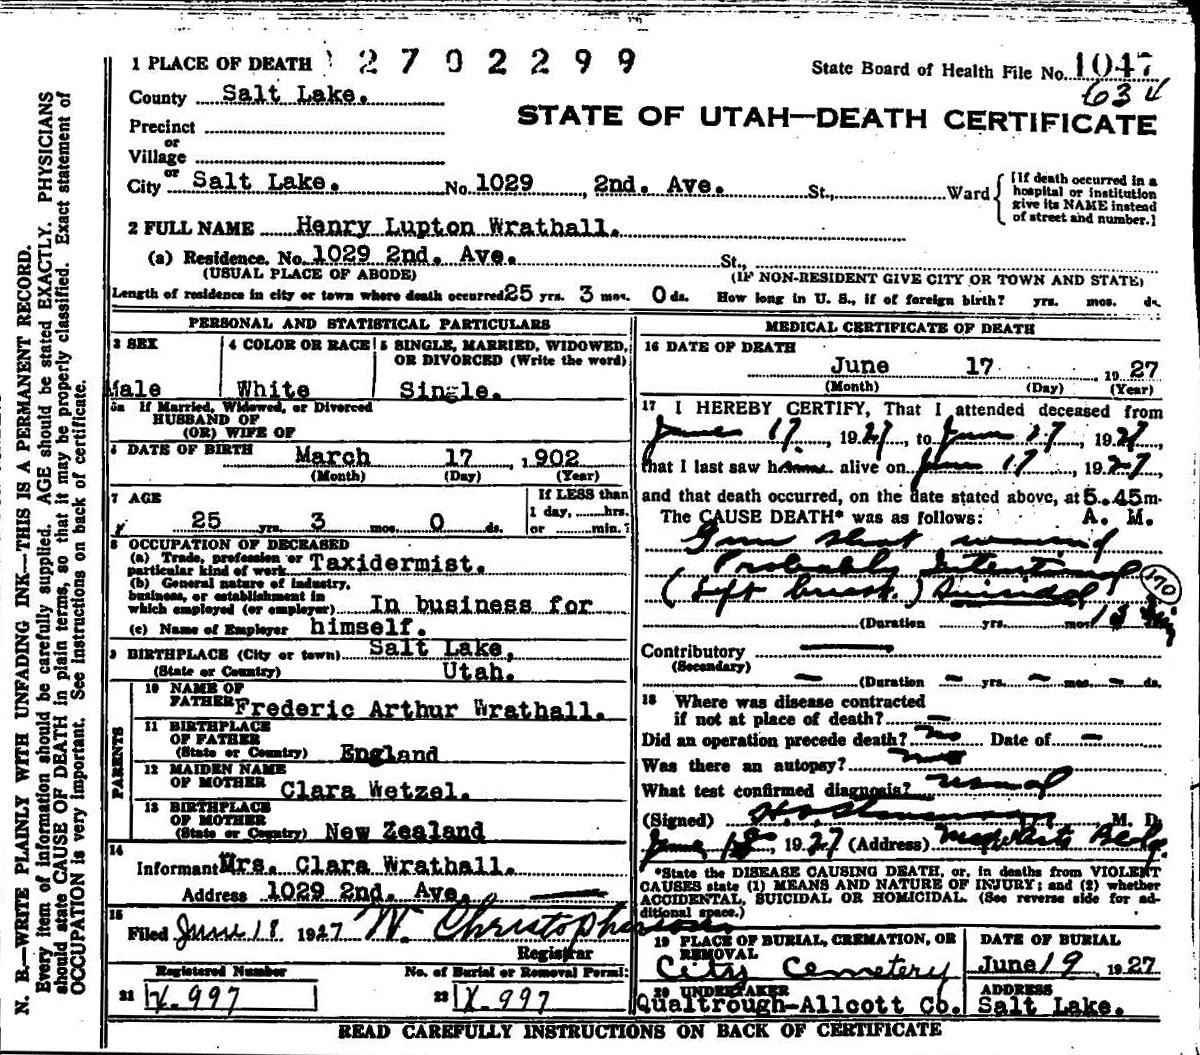 1 PLACE OF DEATH 2702299
State Board of Health File No. 1047
634
County Salt Lake.
STATE OF UTAH—DEATH CERTIFICATE
Precinct
or
Village
or
City Salt Lake. No. 1029, 2nd. Ave. St., Ward
[If death occurred in a
hospital or institution
give its NAME instead
of street and number.]
2 FULL NAME Henry Lupton Wrathall.
(a) Residence. No. 1029 2nd. Ave. St.,
(USUAL PLACE OF ABODE) (IF NON-RESIDENT GIVE CITY OR TOWN AND STATE)
Length of residence in city or town where death occurred 25 yrs. 3 mos. 0 ds. How long in U. S., if of foreign birth? yrs. mos. ds.
PERSONAL AND STATISTICAL PARTICULARS
3 SEX
Male
4 COLOR OR RACE
White
5 SINGLE, MARRIED, WIDOWED,
OR DIVORCED (Write the word)
Single.
5a If Married, Widowed, or Divorced
HUSBAND OF
(OR) WIFE OF
6 DATE OF BIRTH March 17 , 1902
(Month) (Day) (Year)
7 AGE
25 yrs. 3 mos. 0 ds.
If LESS than
1 day, hrs.
or min.?
8 OCCUPATION OF DECEASED
(a) Trade, profession or
particular kind of work Taxidermist.
(b) General nature of industry,
business, or establishment in
which employed (or employer) In business for
(c) Name of Employer himself.
9 BIRTHPLACE (City or town) Salt Lake,
(State or Country) Utah.
PARENTS
10 NAME OF
FATHER Frederic Arthur Wrathall.
11 BIRTHPLACE
OF FATHER
(State or Country) England
12 MAIDEN NAME
OF MOTHER Clara Wetzel.
13 BIRTHPLACE
OF MOTHER
(State or Country) New Zealand
14
Informant Mrs. Clara Wrathall.
Address 1029 2nd. Ave.
15
Filed June 18 1927 W. Christopherson
Registrar
Registered Number
21 X-997
No. of Burial or Removal Permit
22 X-997
MEDICAL CERTIFICATE OF DEATH
16 DATE OF DEATH
June 17 1927
(Month) (Day) (Year)
17 I HEREBY CERTIFY, That I attended deceased from
June 17, 1927, to June 17, 1927,
that I last saw him alive on June 17, 1927,
and that death occurred, on the date stated above, at 5.45 m-
The CAUSE DEATH* was as follows: A. M.
Gun shot wound
Probably Intentional
(Left breast.) Suicidal 170
(Duration yrs. mos. 15
Contributory
(Secondary)
(Duration yrs. mos. ds.
18 Where was disease contracted
if not at place of death?
Did an operation precede death? no Date of
Was there an autopsy? no
What test confirmed diagnosis? usual
(Signed) M. D.
June 18, 1927 (Address)
*State the DISEASE CAUSING DEATH, or, in deaths from VIOLENT
CAUSES state (1) MEANS AND NATURE OF INJURY; and (2) whether
ACCIDENTAL, SUICIDAL OR HOMICIDAL. (See reverse side for ad-
ditional space.)
19 PLACE OF BURIAL, CREMATION, OR
REMOVAL
City Cemetery
DATE OF BURIAL
June 19 1927
20 UNDERTAKER
Qualtrough-Allcott Co.
ADDRESS
Salt Lake.
READ CAREFULLY INSTRUCTIONS ON BACK OF CERTIFICATE
N. B.—WRITE PLAINLY WITH UNFADING INK—THIS IS A PERMANENT RECORD.
Every item of information should be carefully supplied. AGE should be stated EXACTLY. PHYSICIANS
should state CAUSE OF DEATH in plain terms, so that it may be properly classified. Exact statement of
OCCUPATION is very important. See instructions on back of certificate.